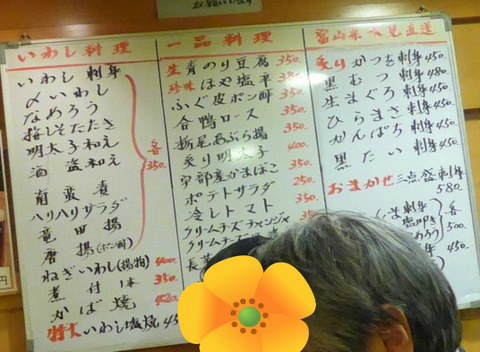 いわし料理
いわし刺身
〆いわし
なめろう
梅しそたたき
明太子和え
酒盗和え
南蛮漬
ハリハリサラダ
竜田揚
唐揚(ポン酢)
各350.
ねぎいわし(揚物) 400.
煮付 1本 350.
かば焼 420.
特大いわし塩焼 45
一品料理
生青のり豆腐 350.
珍味ほや塩辛 380.
ふぐ皮ポン酢 350.
合鴨ロース 350.
栃尾あぶら揚 400.
炙り明太子 350.
宇部産かまぼこ 350.
ポテトサラダ 250.
冷しトマト
クリームチーズチャンジャ
クリームチーズ
長芋
富山県氷見直送
炙りかつを刺身 450.
黒むつ刺身 480.
生まぐろ刺身 450.
ひらまさ刺身 450.
かんぱち刺身 450.
黒たい刺身 450.
おまかせ三点盛刺身 580.
刺身
塩叩き
めろう
各500.
450.